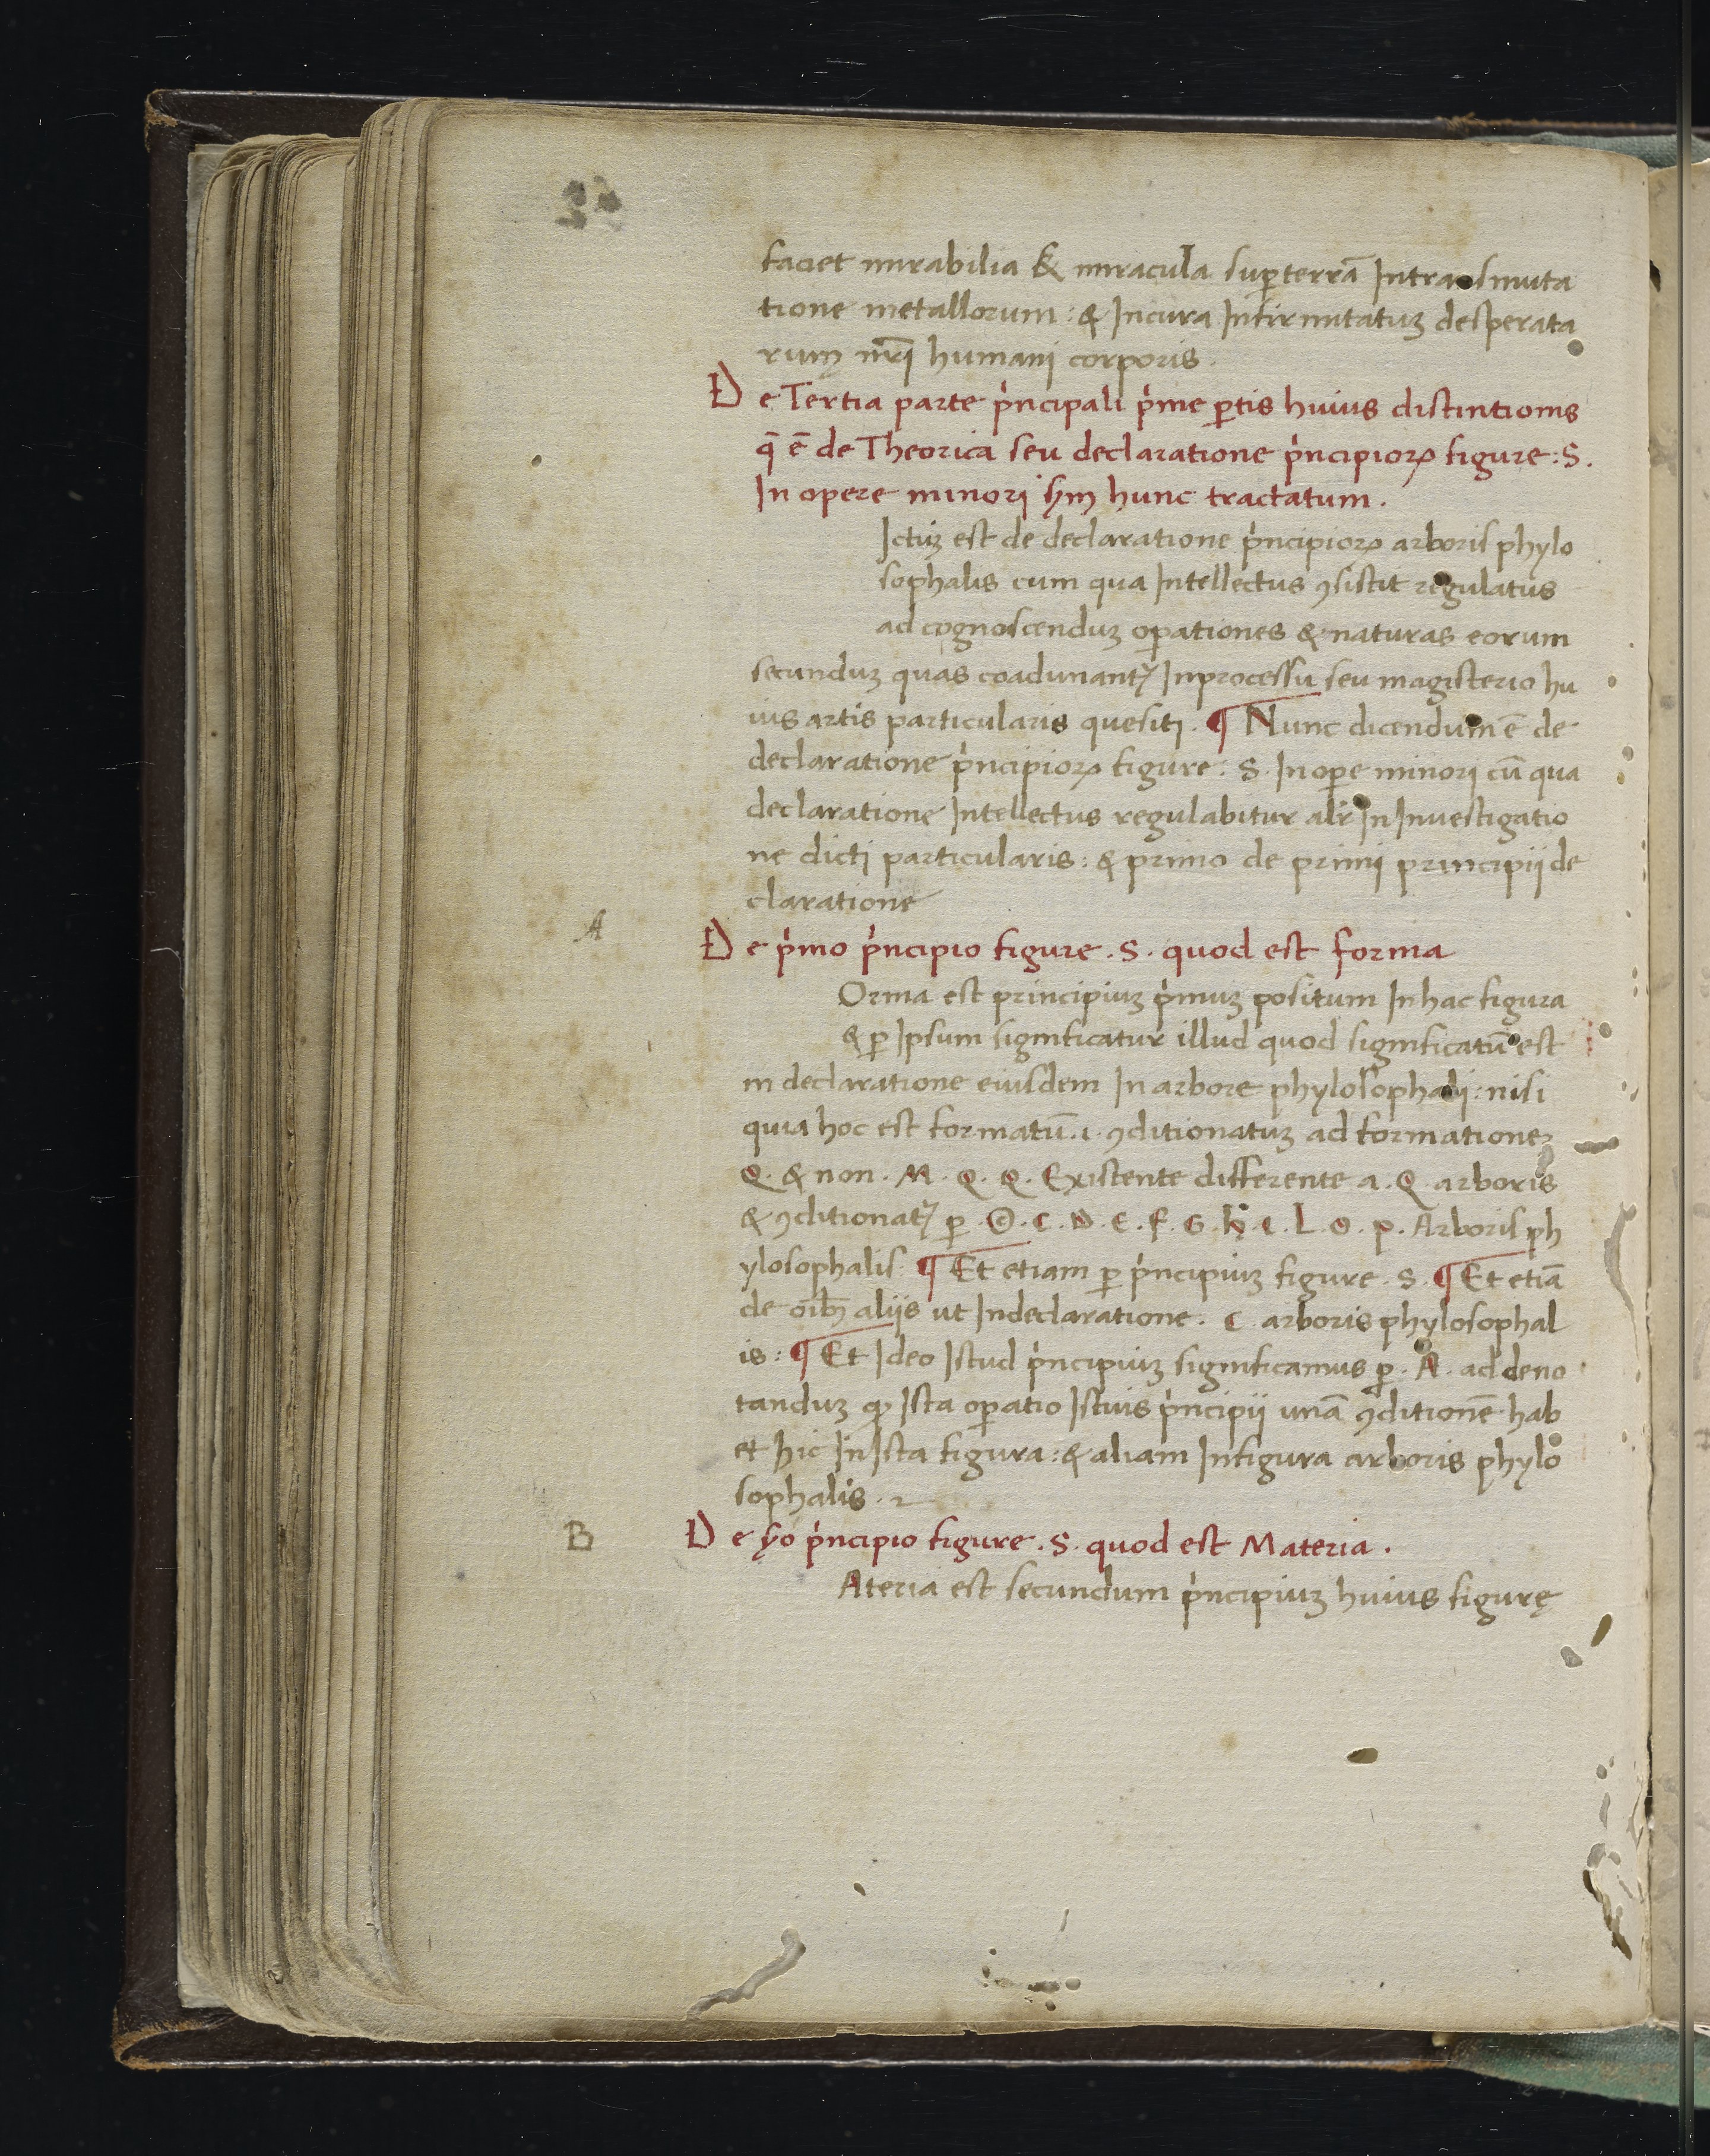 faciet mirabilia & miracula sup̄terrā Intransmuta
tione metallorum : & Incura Infirmitatuꝫ desperata
rum nr̄i humani corporis.
De Tertia parte p̍ncipali p̍me p̄tis huius distintionis
q̄ ē de Theorica seu declaratione p̍ncipioꝝ figure : S.
In opere minori sm̄ hunc tractatum.
Ictuꝫ est de declaratione p̍ncipioꝝ arboris phylo
sophalis cum qua Intellectus ꝯsistit regulatus
ad cognoscenduꝫ oꝑationes & naturas eorum
secunduꝫ quas coadunant᷑ Inprocessu seu magisterio hu
ius artis particularis quesiti. ¶ Nunc dicendum ē de
declaratione p̍ncipioꝝ figure : S. In oꝑe minori cū qua
declaratione Intellectus regulabitur alr̄ In Inuestigatio
ne dicti particularis : & primo de primi principii de
claratione
A
De p̍mo p̍ncipio figure. S. quod est forma
Orma est principiuꝫ p̍muꝫ positum In hac figura
& ꝑ Ipsum significatur illud quod significatū est
in declaratione eiusdem In arbore phylosophali : nisi
quia hoc est formatū. i. ꝯditionatuꝫ ad formationeꝫ
Q. & non. M. Q. Q. Existente differente a. Q. arboris
& ꝯditionat᷑ ꝑ. ©. C. D. E. F. G. h. I. L. O. P. Arboris ph
ylosophalis. ¶ Et etiam ꝑ p̍ncipiuꝫ figure. S. ¶ Et etiā
de oībꝫ aliis ut Indeclaratione. C. arboris phylosophal
is : ¶ Et Ideo Istud p̍ncipiuꝫ significamus ꝑ. A. ad deno
tanduꝫ ꝙ Ista oꝑatio Istius p̍ncipii unā ꝯditionē hab
et hic In Ista figura : & aliam Infigura arboris phylo
sophalis.
B
De s̄o p̍ncipio figure. S. quod est Materia.
Ateria est secundum p̍ncipiuꝫ huius figurę